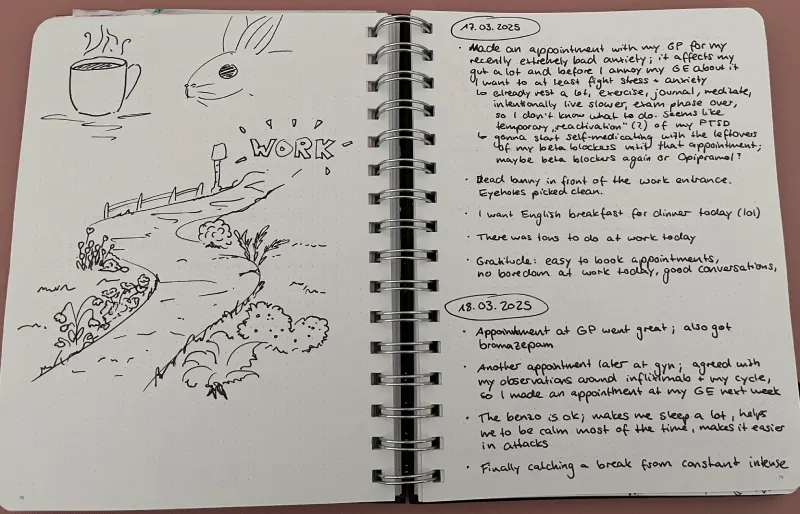 WORK
17.03.2025
· Made an appointment with my GP for my
recently extremely bad anxiety; it affects my
gut a lot and before I annoy my GE about it
I want to at least fight stress + anxiety
↳ already rest a lot, exercise, journal, meditate,
intentionally live slower, exam phase over,
so I don't know what to do. Seems like
temporary „reactivation" (?) of my PTSD
↳ gonna start self-medicating with the leftovers
of my beta blockers until that appointment;
maybe beta blockers again or Opipramol?
· Dead bunny in front of the work entrance.
Eyeholes picked clean.
· I want English breakfast for dinner today (lol)
· There was tons to do at work today
· Gratitude: easy to book appointments,
no boredom at work today, good conversations,
18.03.2025
· Appointment at GP went great; also got
bromazepam
· Another appointment later at gyn; agreed with
my observations around infliximab + my cycle,
so I made an appointment at my GE next week
· The benzo is ok; makes me sleep a lot, helps
me to be calm most of the time, makes it easier
in attacks
· Finally catching a break from constant intense